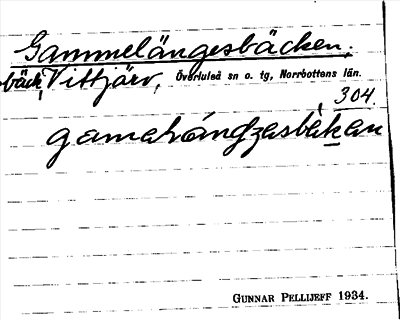 Gammelängesbäcken,
bäck, Vittjärv, Överluleå sn o. tg, Norrbottens län.
304.
GUNNAR PELLIJEFF 1934.